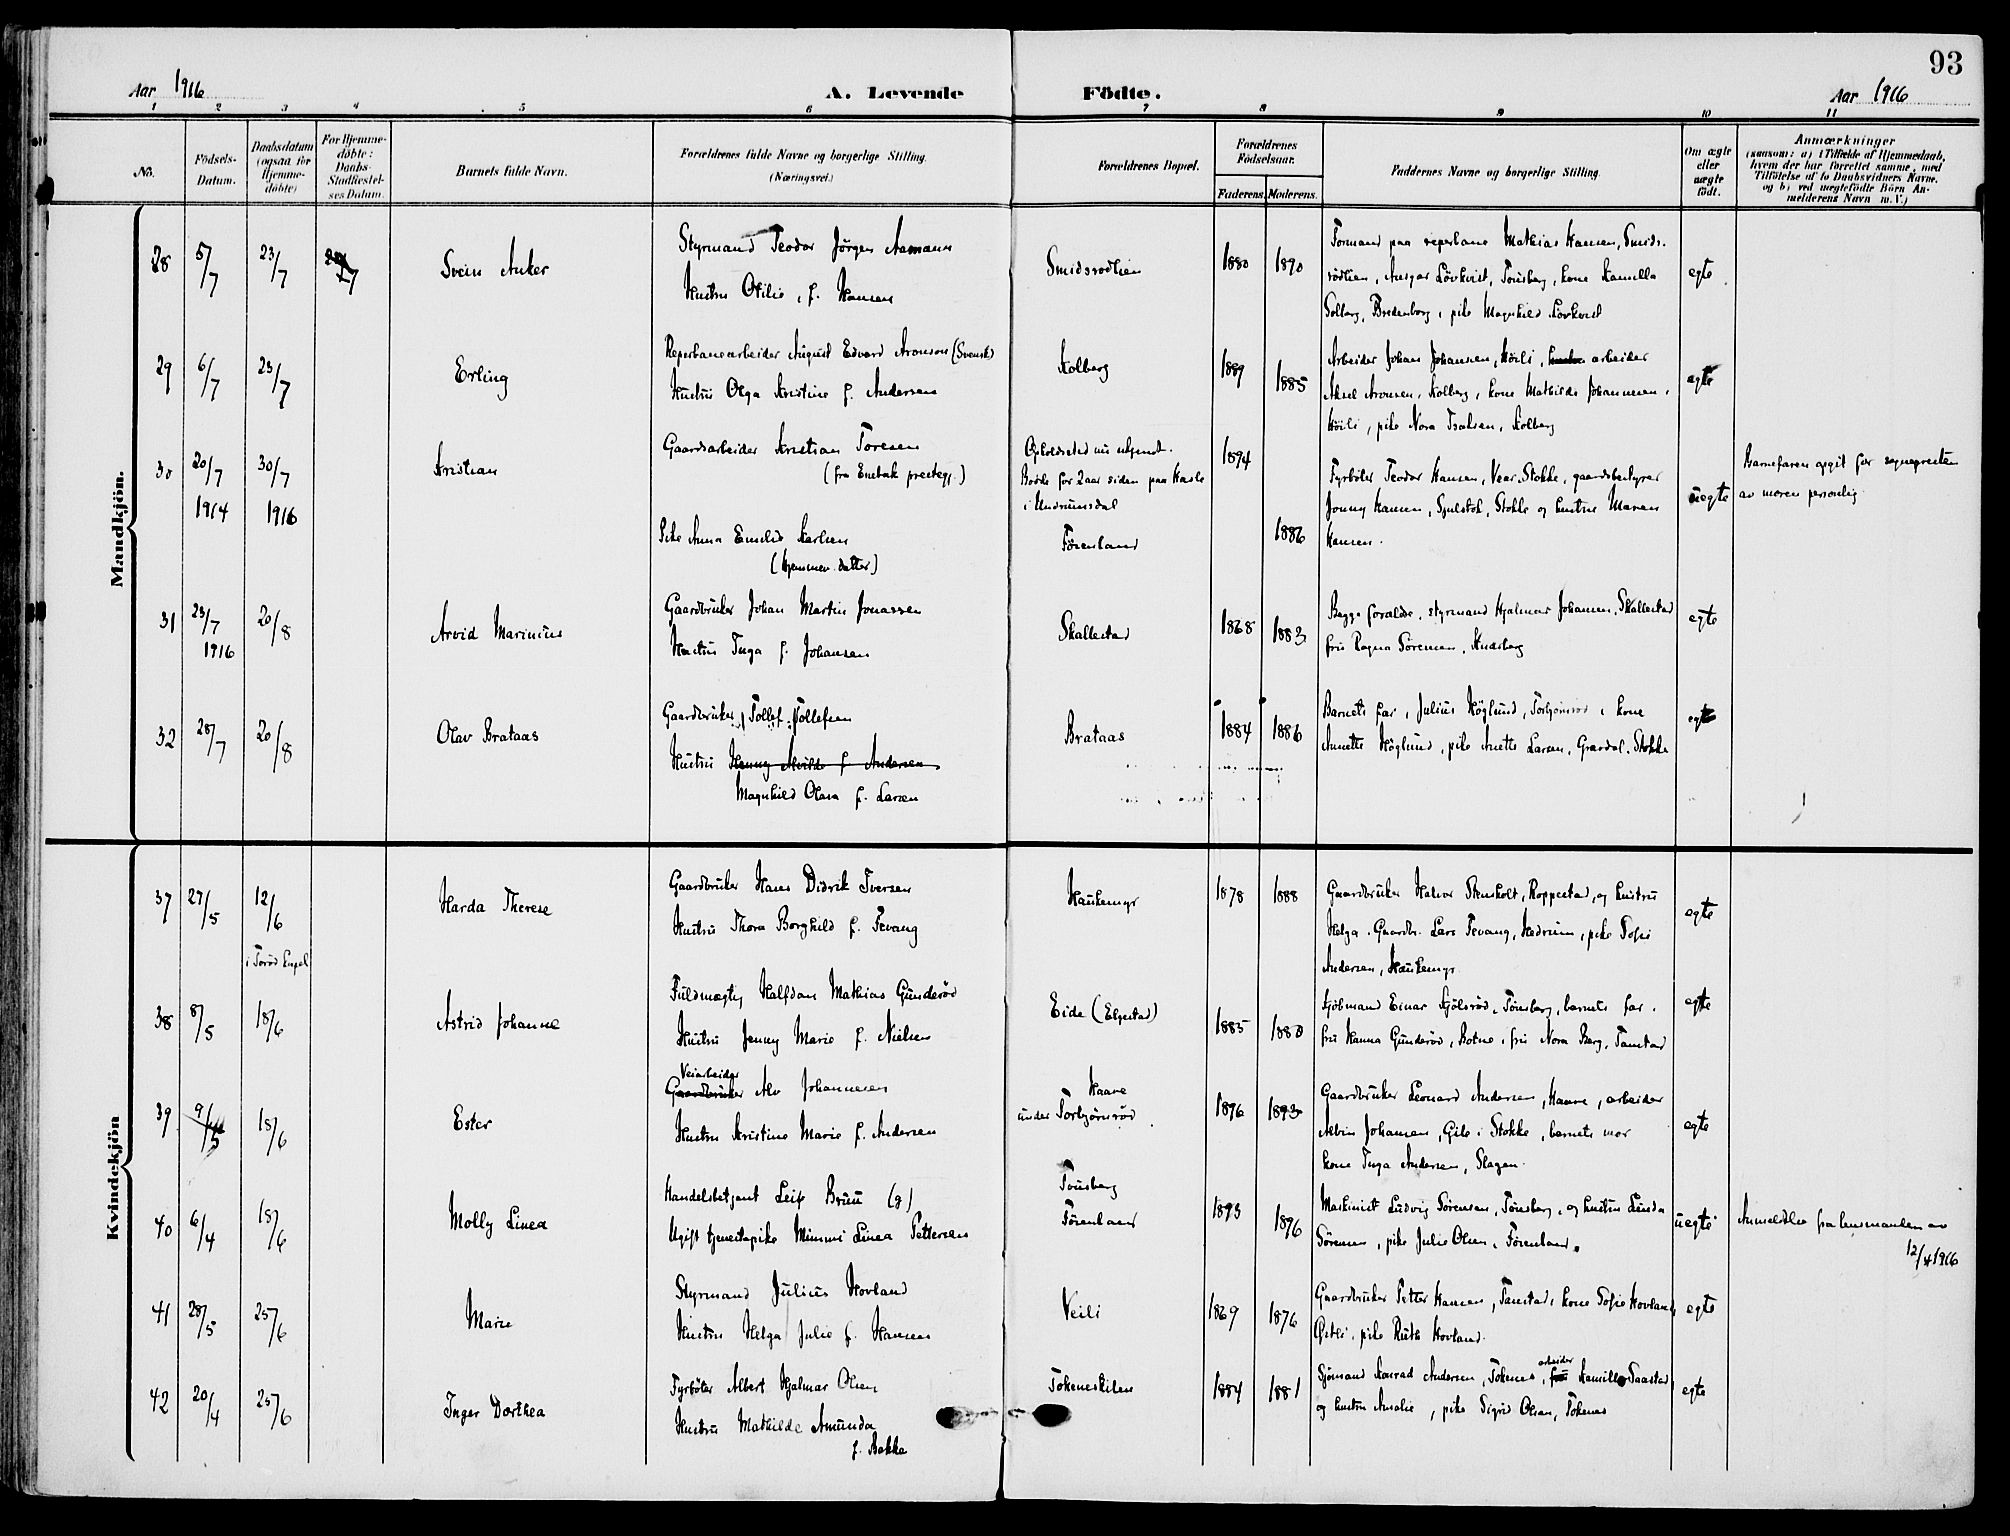 93
Aar 1916
A. Levende Födte.
Aar 1916
1 2 3 4 5 6 7 8 9 10 11
No.
Födsels-Datum.
Daabsdatum (ogsaa for Hjemme-döbte)
For Hjemme-döbte: Daabs-Stadfæstel-ses Datum.
Barnets fulde Navn.
Forældrenes fulde Navne og borgerlige Stilling. (Næringsvei.)
Forældrenes Bopæl.
Forældrenes Födselsaar.
Faderens. Moderens.
Faddernes Navne og borgerlige Stilling.
Om ægte eller uægte födt.
Anmærkninger
(saasom: a) i Tilfælde af Hjemmedaab,
hvem der har forrettet samme, med
Tilföielse af to Daabsvidners Navne.
og b) ved uægtefödte Börn An-
melderens Navn m. V.)
Mandkjön.
28 5/7 23/7
Svein Anker
Styrmand Teodor Jörgen Aamann
Hustru Otilie, f. Hansen
Smidsrødlien
1880 1890
Formand paa reperbane Mathias Hansen, Smids-
rødlien, Ansgar Lövkvist, Tønsberg, kone Kamilla
Solberg, Bredenborg, pike Magnhild Lövkvist
egte
29 6/7 23/7
Erling
Reperbanearbeider August Edvard Aronson (Svensk)
Hustru Olga Kristine f. Andersen
Kolberg
1889 1885
Arbeider Johan Johansen, Höili, arbeider
Aksel Aronsen, Kolberg, kone Mathilde Johannesen,
Höili, pike Nora Isaksen, Kolberg
egte
30 20/7 1914 30/7 1916
Kristian
Gaardsarbeider Kristian Toresen
(fra Enebak prestegj.)
Pike Anna Emilie Karlsen
(Hjemmev. datter)
Opholdssted nu ukjendt.
Bodde for 2 aar siden paa Hasle
i Undrumsdal
Førenland
1894
1886
Fyrböter Teodor Hansen, Vear, Stokke, gaardsbestyrer
Jonny Hansen, Stokke og hustru Maren
Hansen.
uegte
Barnefaren opgit for sognepresten
av moren personlig
31 23/7 1916 20/8
Arvid Marinius
Gaardbruker Johan Martin Jonassen
Hustru Inga f. Johansen
Skallestad
1868 1883
Begge foreldre, styrmand Hjalmar Johansen, Skallestad
fru Ragna Sörensen, Husberg
egte
32 28/7 20/8
Olav Brataas
Gaardbruker Tollef Tollefsen
Hustru Henny Alvilde f. Andersen
Magnhild Olava f. Larsen
Brataas
1884 1886
Barnets far, Julius Höglund, Torbjörnsrød, kone
Annette Höglund, pike Anette Larsen, Grøndal, Stokke
egte
Kvindekjön
37 27/5 12/6
i Torød kapel
Harda Therese
Gaardbruker Hans Didrik Iversen
Hustru Thora Borghild f. Tevang
Haukemyr
1878 1888
Gaardbruker Halvor Stensholt, Roppestad, og hustru
Helga, Gaardbr. Lars Tevang, Hedrum, pike Sofie
Andersen, Haukemyr
egte
38 8/5 18/6
Astrid Johanne
Fuldmægtig Halfdan Mathias Gunderød
Hustru Jenny Marie f. Nielsen
Eide (Elgestad)
1885 1880
Kjöbmand Einar Kjölsrød, Tønsberg, barnets far,
fru Hanna Gunderød, Botne, fru Nora Berg, Tamstad
egte
39 9/5 18/6
Ester
Veiarbeider
Gaardbruker Alv Johannesen
Hustru Kristine Marie f. Andersen
Haave
under Torbjörnsrød
1896 1893
Gaardbruker Leonard Andersen, Haave, arbeider
Albin Johansen, Gile i Stokke, barnets mor
kone Inga Andersen, Slagen.
egte
40 6/4 18/6
Molly Linea
Handelsbetjent Leif Bruu (g)
Ugift tjenestepike Mimmi Linea Pettersen
Tønsberg
Førenland
1893 1896
Maskinist Ludvig Sörensen, Tønsberg, og hustru Linda
Sörensen, pike Julie Olsen, Førenland.
uegte
Anmeldelse fra lensmanden av
12/4 1916
41 28/5 25/6
Marie
Styrmand Julius Hovland
Hustru Helga Julie f. Hansen
Veili
1869 1876
Gaardbruker Petter Hansen, Tamstad, kone Sofie Hovland,
Østli, pike Ruth Hovland.
egte
42 20/4 25/6
Inger Dorthea
Fyrböter Albert Hjalmar Olsen
Hustru Mathilde Amunda
f. Bakke
Tokeneskilen
1884 1881
Sjömand Konrad Andersen, Tokenes, arbeider Kamillo Saastad
og hustru Amalie, pike Sigrid Olsen, Tokenes
egte